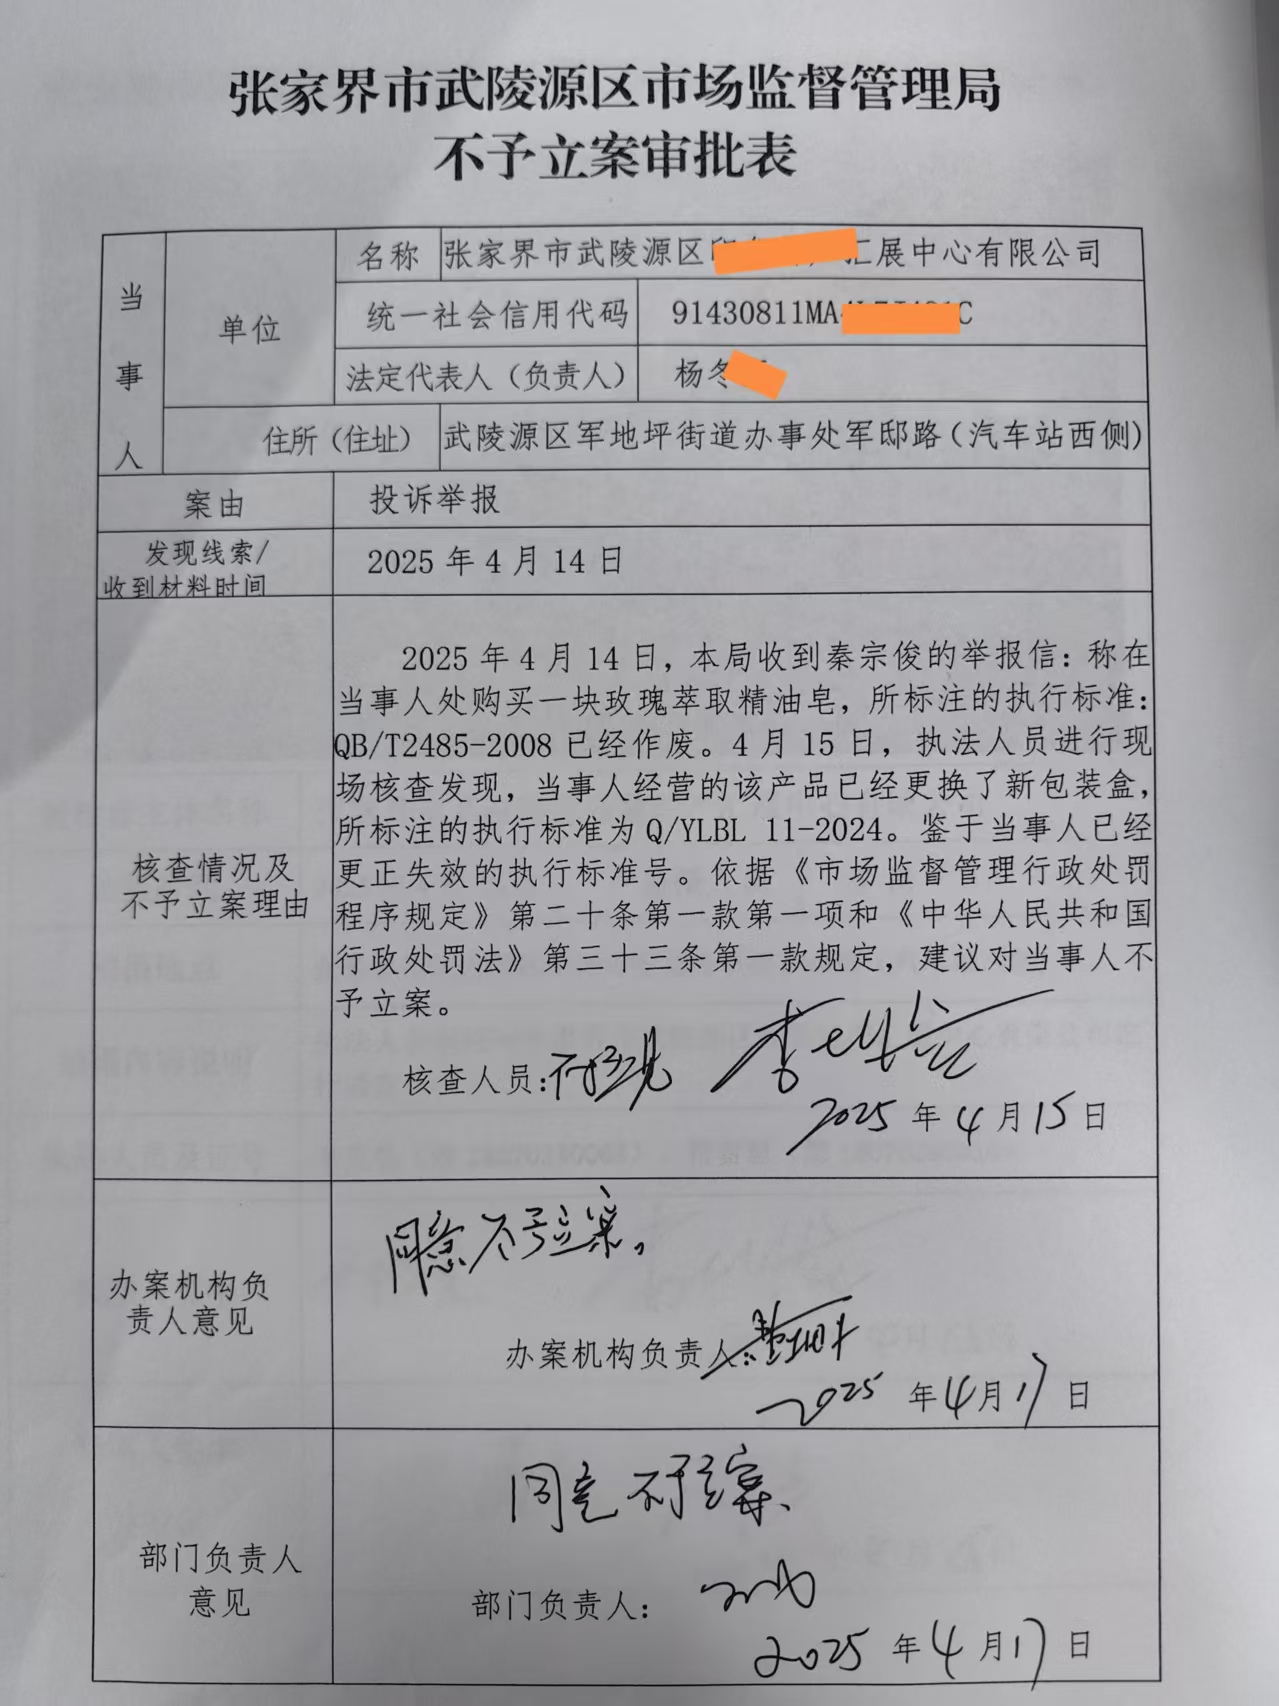 张家界市武陵源区市场监督管理局
不予立案审批表
当事人
单位
名称
张家界市武陵源区
汇展中心有限公司
统一社会信用代码
91430811MA
C
法定代表人（负责人）
杨冬
住所（住址）
武陵源区军地坪街道办事处军邸路（汽车站西侧）
案由
投诉举报
发现线索/
收到材料时间
2025年4月14日
核查情况及
不予立案理由
2025年4月14日，本局收到秦宗俊的举报信：称在
当事人处购买一块玫瑰萃取精油皂，所标注的执行标准：
QB/T2485-2008已经作废。4月15日，执法人员进行现
场核查发现，当事人经营的该产品已经更换了新包装盒，
所标注的执行标准为Q/YLBL 11-2024。鉴于当事人已经
更正失效的执行标准号。依据《市场监督管理行政处罚
程序规定》第二十条第一款第一项和《中华人民共和国
行政处罚法》第三十三条第一款规定，建议对当事人不
予立案。
核查人员：
2025年4月15日
办案机构负
责人意见
同意不予立案。
办案机构负责人：
2025年4月17日
部门负责人
意见
同意不予立案、
部门负责人：
2025年4月17日